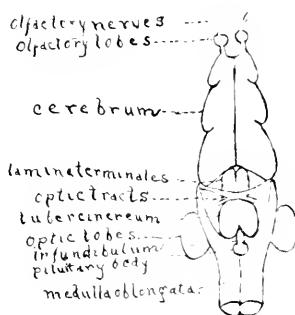 olfactory nerves
olfactory lobes
cerebrum
laminaterminales
optic tracts
tubercinereum
optic lobes
infundibulum
pituitary body
medulla oblongata